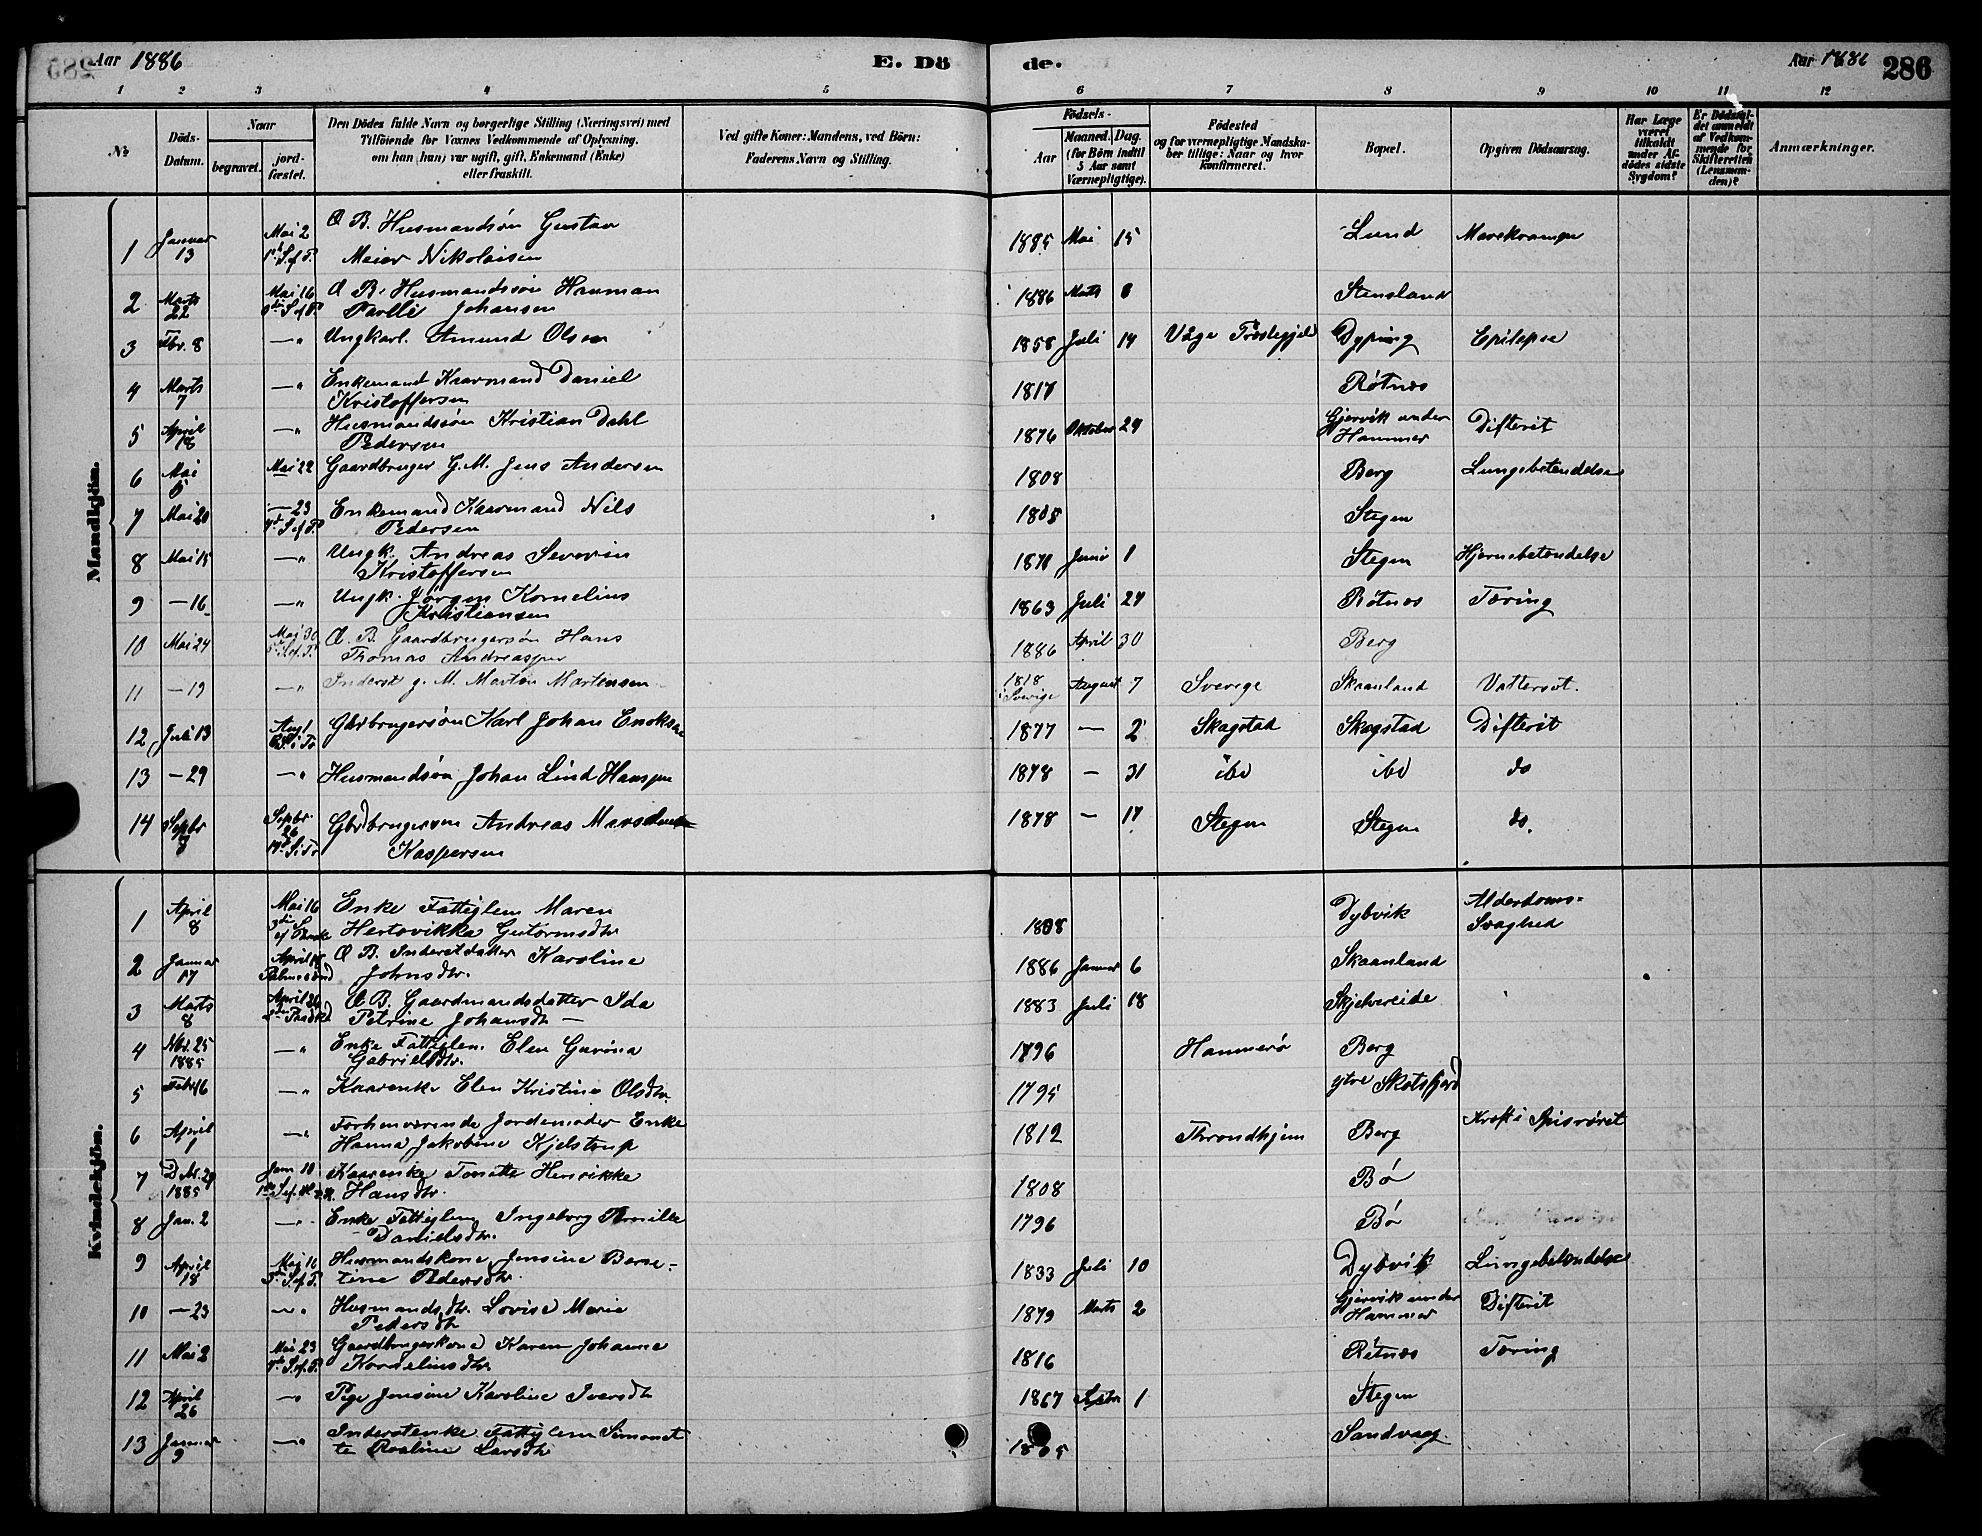 Aar 1886
E. Dö
de.
Aar 1886
286
1 2 3 4 5 6 7 8 9 10 11 12
№
Döds-Datum.
Naar
begravet.
jord-fæstet.
Den Dödes fulde Navn og borgerlige Stilling (Næringsvei) med
Tilföiende for Voxnes Vedkommende af Oplysning,
om han (hun) var ugift, gift, Enkemand (Enke)
eller fraskilt.
Ved gifte Koner: Mandens, ved Börn:
Faderens Navn og Stilling.
Födsels-
Aar
Maaned. Dag.
(for Börn indtil
5 Aar samt
Værnepligtige).
Födested
og for værnepligtige Mandska-
ber tillige: Naar og hvor
konfirmeret.
Bopæl.
Opgiven Dödsaarsag.
Har Læge
været
tilkaldt
under Af-
dödes sidste
Sygdom?
Er Dödsfal-
det anmeldt
af Vedkom-
mende for
Skifteretten
(Lensman-
den)?
Anmærkninger.
Mandkjön.
1 Januar 13 Mai 2 Æ B. Husmandsön Gustav
Meier Nikolaisen 1885 Mai 15 Lund
2 Marts 22 Mai 16 Æ B. Husmandssön Herman
Johansen 1886 Marts Stensland
3 Fbr. 8 —" Ungkarl. Amund Olsen 1858 Juli 14 Våge Præstegjeld Dyping Epilepsi
4 Marts 7 —" Enkemand Kaarmand Daniel
Kristoffersen 1817 Røtnes
5 April 18 —" Husmandssön Kristian Dahl
Pedersen 1876 Oktober 29 Gjervik under Hammer Difterit
6 Mai 5 Mai 22 Gaardbruger G.M. Jens Andersen 1808 Berg Lungebetendelse
7 Mai 20 — 23 Enkemand Kaarmand Nils
Pedersen 1808 Stegen
8 Mai 15 —" Ungk. Andreas Severin
Kristoffersen 1870 Juni 1 Stegen Hjernebetendelse
9 — 16 —" Ungk. Jörgen Kornelius
Kristiansen 1863 Juli 29 Røtnes Tæring
10 Mai 24 Mai 30 Æ. B. Gaardbrugersön Hans
Thomas Andreassen 1886 April 30 Berg
11 — 19 —" Inderst g. M. Morten Mortensen 1818 i Sverige August 7 Sverige Skaanland Vattersot.
12 Juli 13 Aug 1 Gbrbrugersön Karl Johan Enoksen 1877 — 2 Skagstad Skagstad Difterit
13 — 29 —" Husmandsön Johan Lind Hanssen 1878 — 31 ibd ibd do
14 Septbr Septbr. 26 Gbrdbrugersön Andreas
Kaspersen 1878 — 17 Stegen Stegen do.
Kvindekjön.
1 April 8 Mai 16 Enke Fattiglem Maren
Hertevikka Guttormsdtr 1808 Dybvik Alderdoms-
Svaghed
2 Januar 17 April 18 Palmesönd Æ B. Inderstdatter Karoline
Johnsdtr. 1886 Januar 6 Skaanland
3 Marts 8 April 26 Æ B. Gaardmandsdatter Ida
Petrine Johansdtr — 1883 Juli 18 Skjelvereide
4 Nbr. 25 1885 —" Enke Fattiglem. Elen Gurina
Gabrielsdtr. 1796 Hammerø Berg
5 Febr 16 —" Kaarenke Elen Kristine Olsdtr. 1795 ytre Skotsfjord
6 April 1 —" Forhenværende Jordemoder Enke
Hanna Jakobine Kjelstrup 1812 Throndhjem Berg Kræft i Spisröret
7 Dcbr. 29 1885 Jan 10 Kaarenke Tonette Henrikke
Hansdtr. 1808 Bø
8 Jan. 2 —" Enke Fattiglem Ingeborg Pernille
Danielsdtr. 1796 Bø
9 April 18 Mai 16 Husmandskone Jensine Berne-
tine Pedersdtr 1833 Juli 10 Dybvik Lungebetendelse
10 — 23 —" Husmandsdtr. Lovise Marie
Pedersdtr 1879 Marts 2 Gjervik under Hammer Difterit
11 Mai 2 Mai 23 Gaardbrugerkone Karen Johanne
Korneliusdtr. 1816 Røtnes Tæring
12 April 26 —" Pige Jensine Karoline Iversdtr 1867 Septbr 1 Stegen
13 Januar 9 —" Inderstenke Fattiglem Simonet-
te Roaline Larsdtr Sandvaag